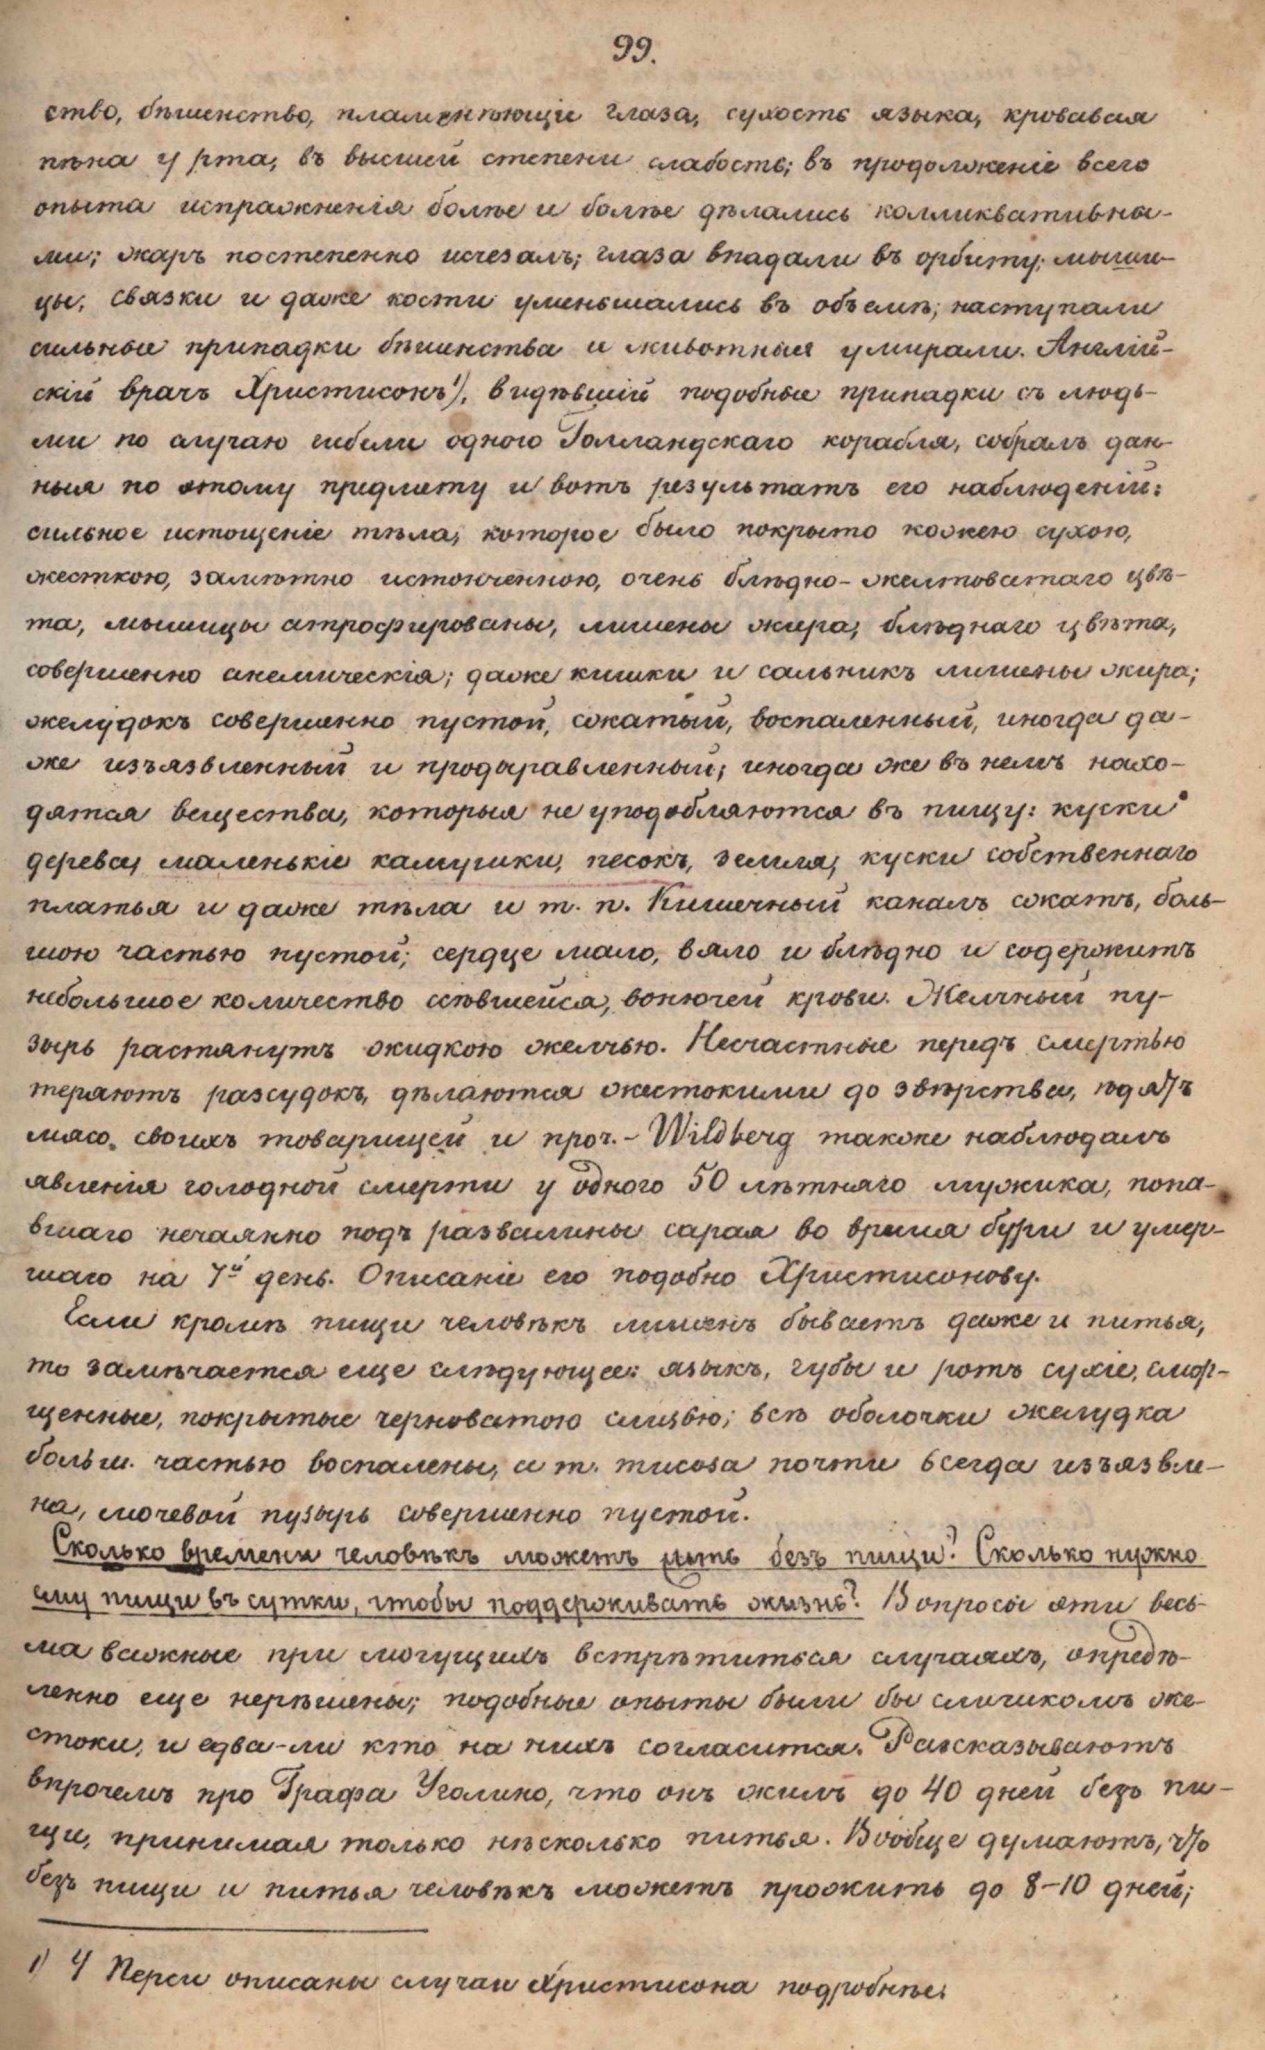 99.
ство, бѣшенство, пламенѣющіе глаза, сухость языка, кровавая
пѣна у рта, въ высшей степени слабость; въ продолженіе всего
опыта испражненія болѣе и болѣе дѣлались колликвативны-
ми; жаръ постепенно исчезалъ; глаза впадали въ орбиту; мыши-
цы, связки и даже кости уменьшались въ объемѣ; наступали
сильные припадки бѣшенства и животныя умирали. Англій-
скій врачъ Христисонъ¹), видѣвшій подобные припадки съ людь-
ми по случаю гибели одного Голландскаго корабля, собралъ дан-
ныя по этому предмету и вотъ результатъ его наблюденій:
сильное истощеніе тѣла, которое было покрыто кожею сухою,
жесткою, замѣтно истонченною, очень блѣдно-желтоватаго цвѣ-
та, мышицы атрофированы, лишены жира, блѣднаго цвѣта,
совершенно анемическія; даже кишки и сальникъ лишены жира;
желудокъ совершенно пустой, сжатый, воспаленный, иногда да-
же изъязвленный и продыравленный; иногда же въ немъ нахо-
дятся вещества, которыя не уподобляются въ пищу: куски
дерева, маленькіе камушки, песокъ, земля, куски собственнаго
платья и даже тѣла и т. п. Кишечный каналъ сжатъ, боль-
шою частью пустой; сердце мало, вяло и блѣдно и содержитъ
небольшое количество сѣвшейся, вонючей крови. Желчный пу-
зырь растянутъ жидкою желчью. Несчастные передъ смертью
теряютъ разсудокъ, дѣлаются жестокими до звѣрства, ѣдятъ
мясо своихъ товарищей и проч. - Wildberg также наблюдалъ
явленія голодной смерти у одного 50 лѣтняго мужика, попа-
вшаго нечаянно подъ развалины сарая во время бури и умер-
шаго на 7й день. Описаніе его подобно Христисонову.
Если кромѣ пищи человѣкъ лишенъ бываетъ даже и питья,
то замѣчается еще слѣдующее: языкъ, губы и ротъ сухіе, смор-
щенные, покрытые черноватою слизью; всѣ оболочки желудка
больш. частью воспалены, а т. mucosa почти всегда изъязвле-
на, мочевой пузырь совершенно пустой.
Сколько времени человѣкъ можетъ жить безъ пищи? Сколько нужно
ему пищи въ сутки, чтобы поддерживать жизнь? Вопросы эти весь-
ма важные при могущихъ встрѣтиться случаяхъ, опредѣ-
ленно еще нерѣшены; подобные опыты были бы слишкомъ же-
стоки, и едва-ли кто на нихъ согласится. Разсказываютъ
впрочемъ про Графа Уголино, что онъ жилъ до 40 дней безъ пи-
щи, принимая только нѣсколько питья. Вообще думаютъ, что
безъ пищи и питья человѣкъ можетъ прожить до 8-10 дней;
1) У Перси описаны случаи Христисона подробнѣе.